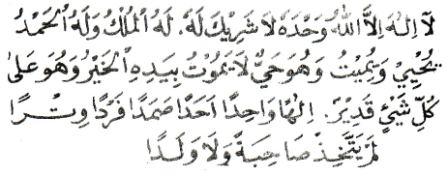 لَآ اِلٰهَ اِلَّا اللهُ وَحْدَهُ لَا شَرِيْكَ لَهُ، لَهُ الْمُلْكُ وَلَهُ الْحَمْدُ
يُحْيِيْ وَيُمِيْتُ وَهُوَ حَيٌّ لَا يَمُوْتُ بِيَدِهِ الْخَيْرُ وَهُوَ عَلٰى
كُلِّ شَيْئٍ قَدِيْرٌ. اِلٰهًا وَاحِدًا اَحَدًا صَمَدًا فَرْدًا وِتْرًا
لَمْ يَتَّخِذْ صَاحِبَةً وَلَا وَلَدًا